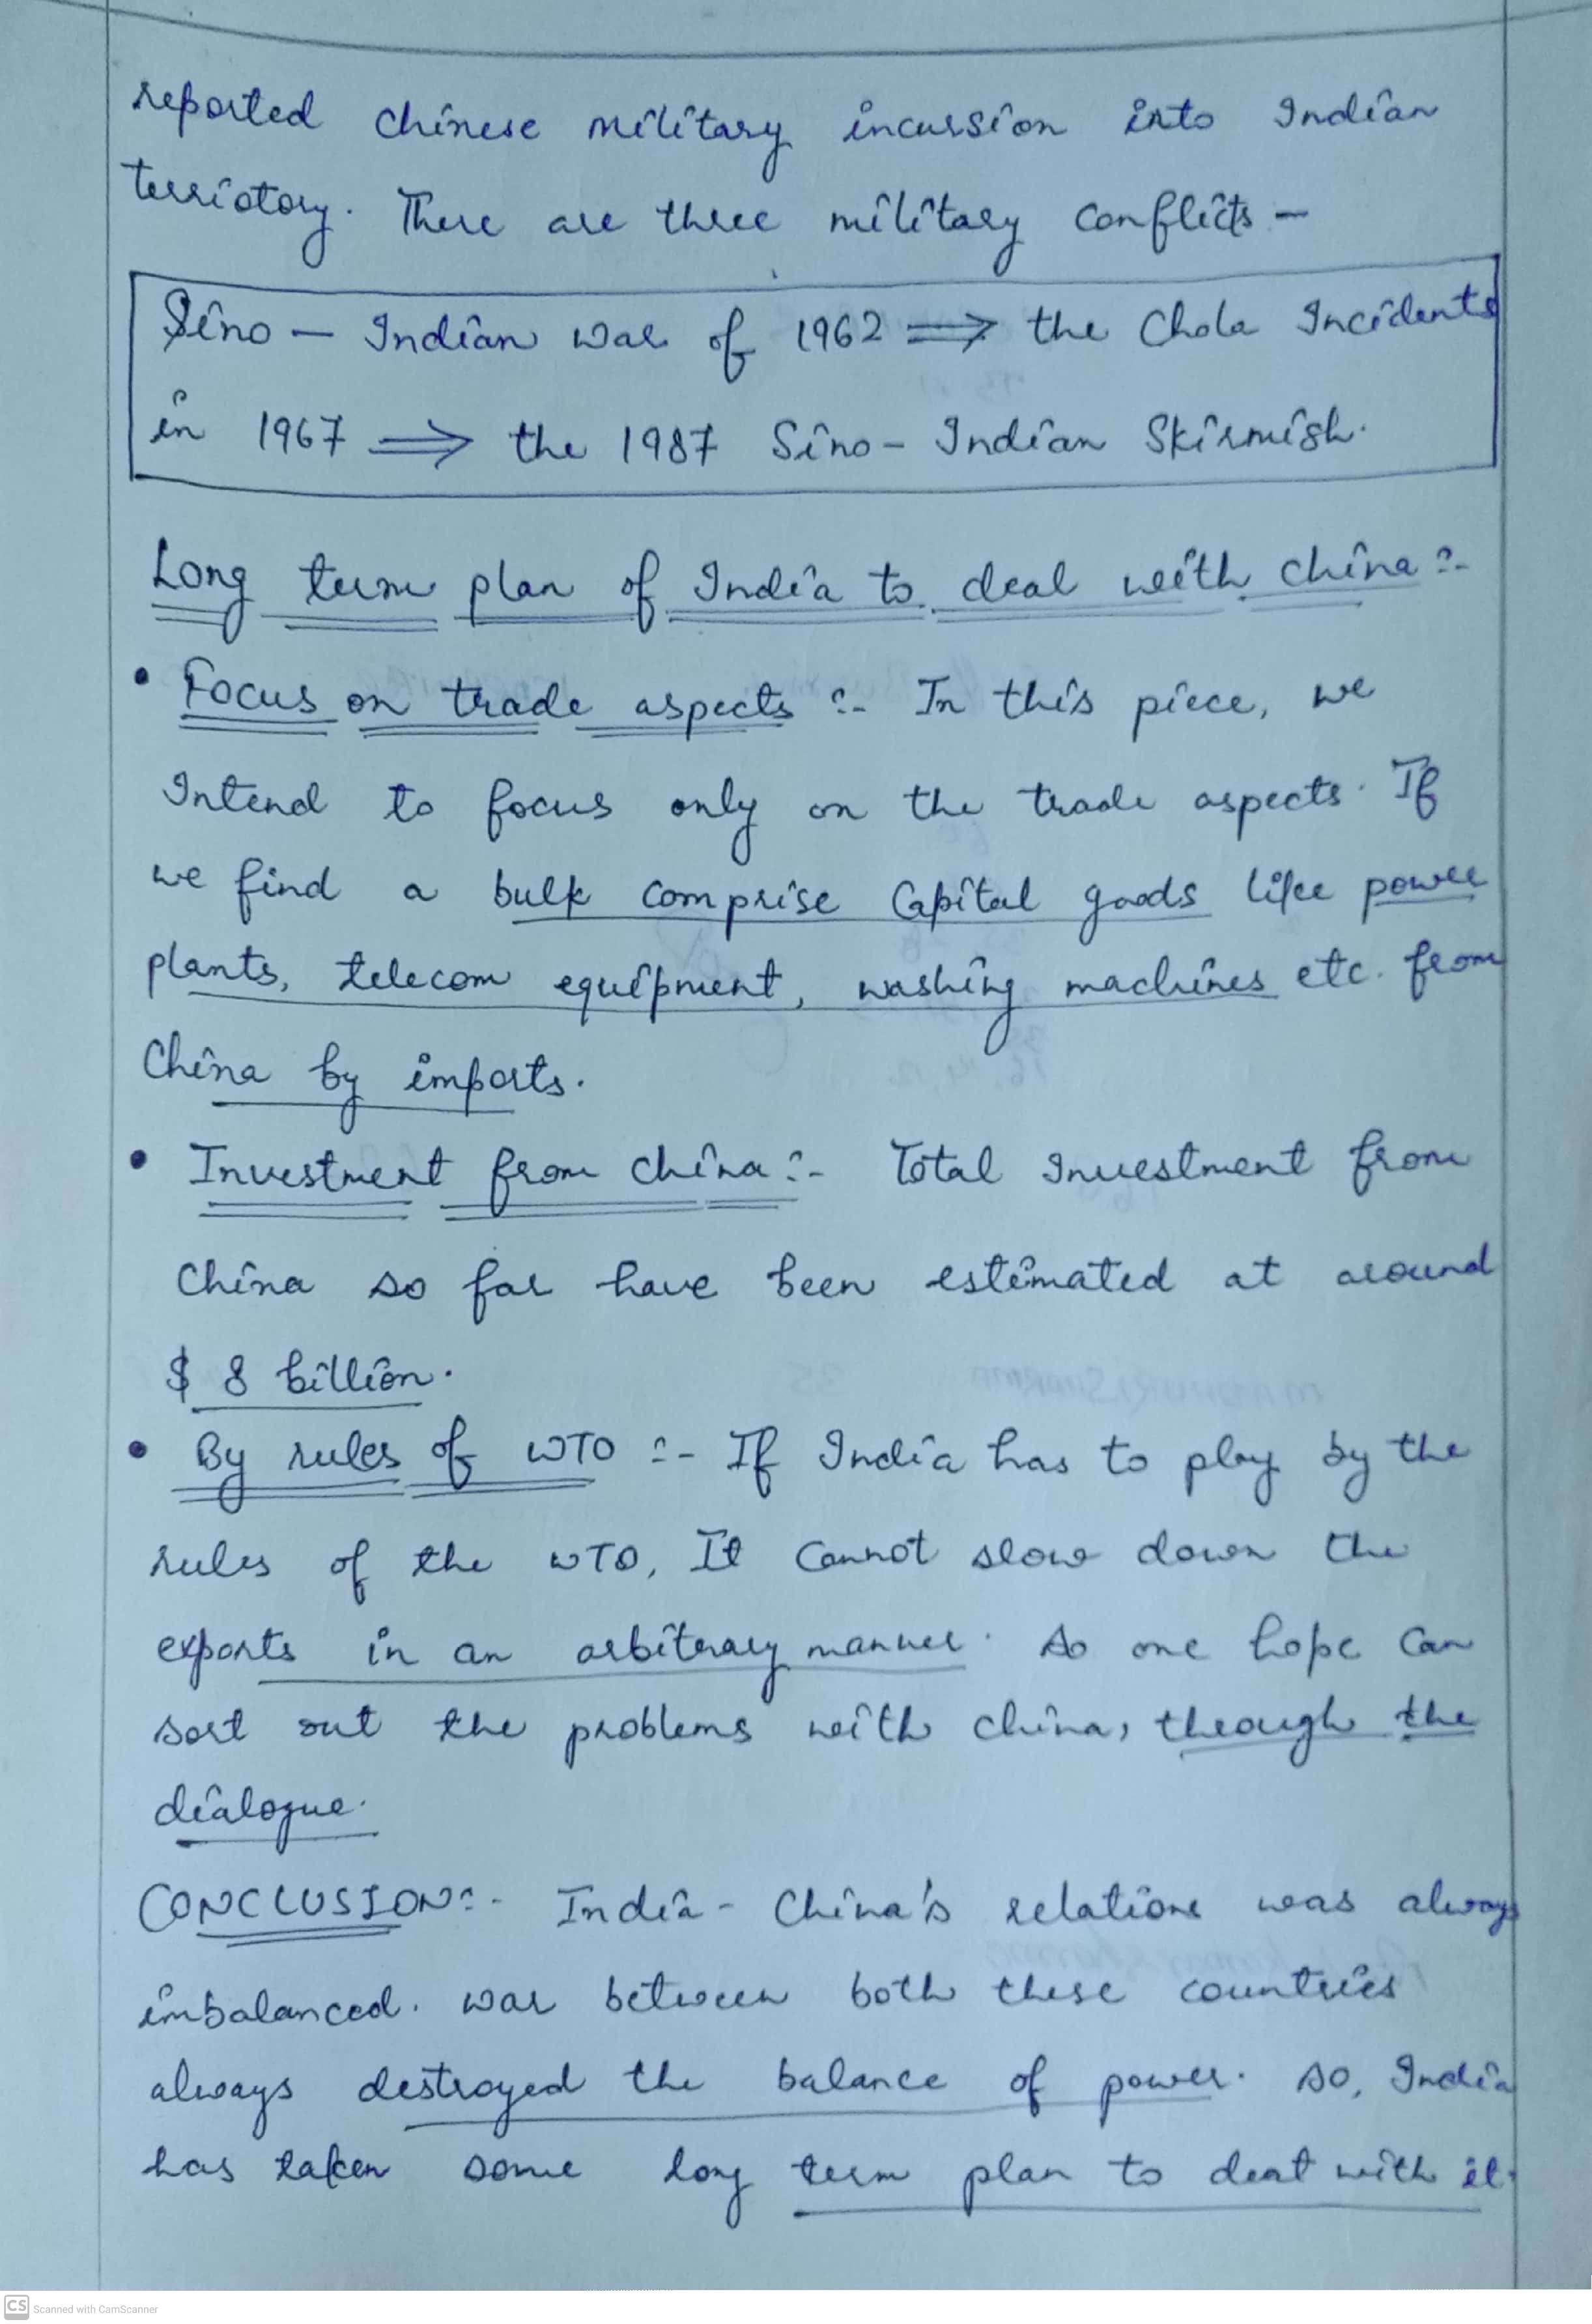 reported chinese military incursion into Indian
terriotory. There are three military conflicts –
Sino – Indian war of 1962 ⟹ the Chola Incidents
in 1967 ⟹ the 1987 Sino – Indian Skirmish.
Long term plan of India to deal with china :-
• Focus on trade aspects :- In this piece, we
Intend to focus only on the trade aspects. If
we find a bulk comprise Capital goods like power
plants, telecom equipment, washing machines etc. from
China by imports.
• Investment from china :- Total Investment from
China so far have been estimated at around
$ 8 billion.
• By rules of WTO :- If India has to play by the
rules of the WTO, It Cannot slow down the
exports in an arbitrary manner. So one hope Can
sort out the problems with china, through the
dialogue.
CONCLUSION :- India - China's relations was always
imbalanced. war between both these countries
always destroyed the balance of power. So, India
has taken some long term plan to deat with it.
CS Scanned with CamScanner